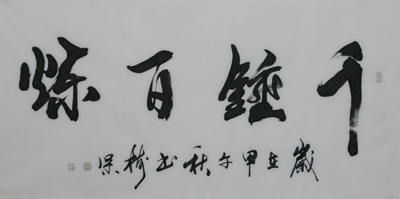 千錘百煉
歲在甲午秋出樹保